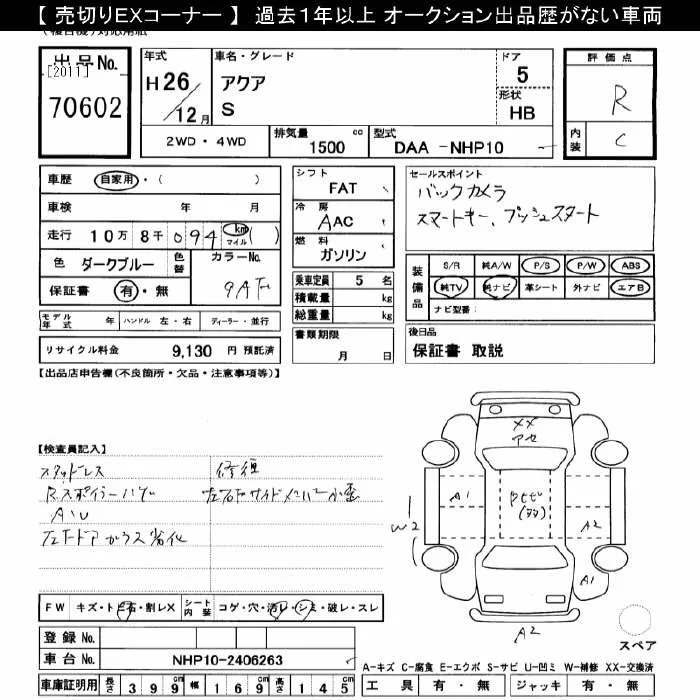 【 売切りEXコーナー 】 過去１年以上 オークション出品歴がない車両
出品No.
[2011]
70602
年式
H26/12月
車名・グレード
アクア
S
ドア
5
形状
HB
評価点
R
内装
C
2WD・4WD
排気量 1500 cc
型式 DAA -NHP10
車歴 自家用・( )
車検 年 月
走行 10万 8千 094 km マイル ( )
色 ダークブルー 色替 カラーNo.
保証書 有・無 9AF
シフト FAT
冷房 AAC
燃料 ガソリン
乗車定員 5 名
積載量 kg
総重量 kg
書類期限
月 日
セールスポイント
バックカメラ
スマートキー、プッシュスタート
装備品
S/R 純A/W P/S P/W ABS
純TV 純ナビ 革シート 外ナビ エアB
ナビ型番:
後日品
保証書 取説
モデル年式 年 ハンドル 左・右 ディーラー・並行
リサイクル料金 9,130 円 預託済
【出品店申告欄(不良箇所・欠品・注意事項等)】
【検査員記入】
スタッドレス
修復
A・U
左Fドアガラス劣化
XX
アセ
A1
W2
A2
A1
A2
FW キズ・ト ビ石・割レX シート内装 コゲ・穴・汚レ・シミ・破レ・スレ
スペア
登録 No.
車台 No. NHP10-2406263
車庫証明用 長さ 399 cm 幅 169 cm 高さ 145 cm
A-キズ C-腐食 E-エクボ S-サビ U-凹ミ W-補修 XX-交換済
工具 有・無 ジャッキ 有・無